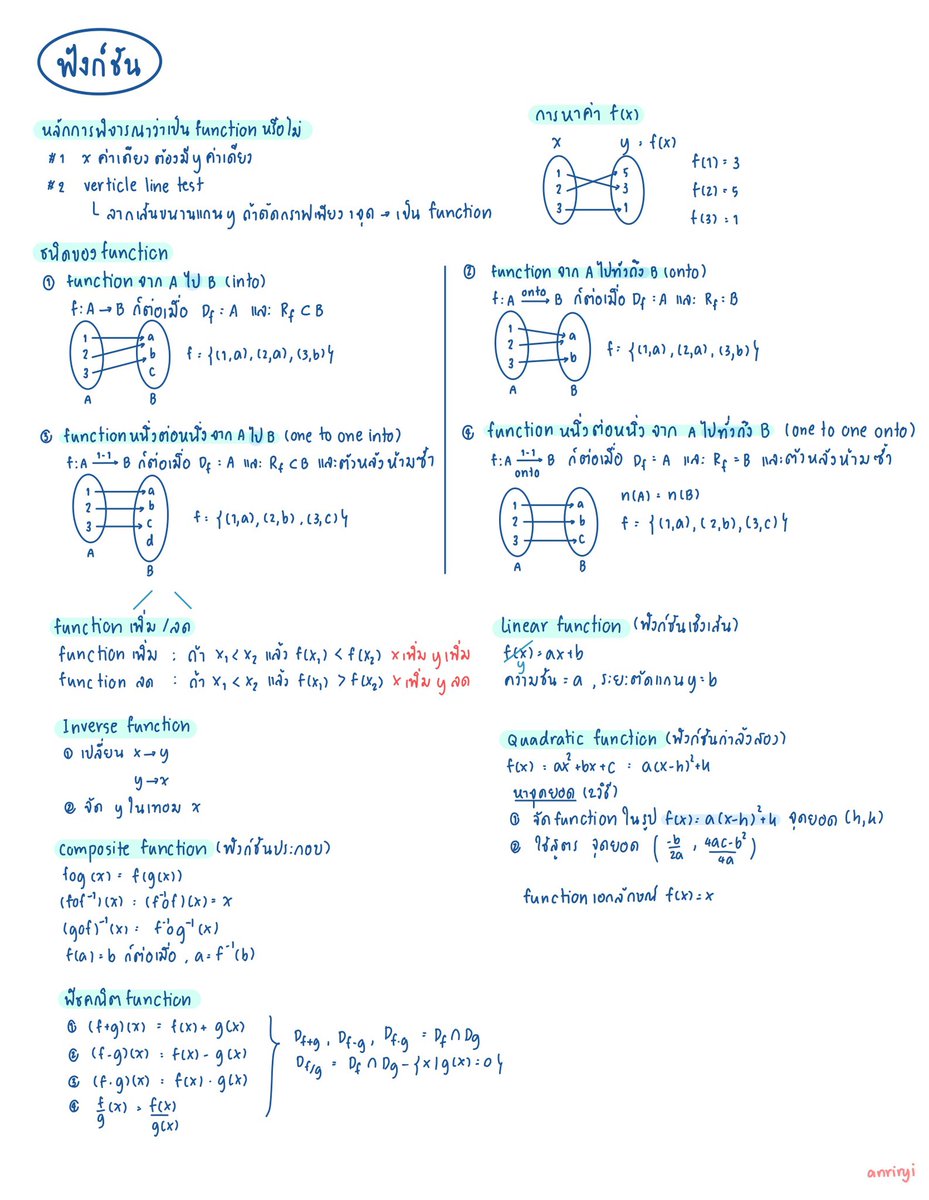 ฟังก์ชัน
หลักการพิจารณาว่าเป็น function หรือไม่
#1 x ค่าเดียว ต้องมี y ค่าเดียว
#2 verticle line test
ลากเส้นขนานแกน y ถ้าตัดกราฟเพียง 1 จุด → เป็น function
การหาค่า f(x)
x y = f(x)
1 5
2 3
3 1
f(1) = 3
f(2) = 5
f(3) = 1
ชนิดของ function
① function จาก A ไป B (into)
f: A → B ก็ต่อเมื่อ Df = A และ Rf ⊂ B
1 a
2 b
3 c
A B
f = {(1,a), (2,a), (3,b)}
② function จาก A ไปทั่วถึง B (onto)
f: A onto→ B ก็ต่อเมื่อ Df = A และ Rf = B
1 a
2
3 b
A B
f = {(1,a), (2,a), (3,b)}
③ function หนึ่งต่อหนึ่ง จาก A ไป B (one to one into)
f: A 1-1→ B ก็ต่อเมื่อ Df = A และ Rf ⊂ B และตัวหลังห้ามซ้ำ
1 a
2 b
3 c
d
A
B
f = {(1,a), (2,b), (3,c)}
④ function หนึ่งต่อหนึ่ง จาก A ไปทั่วถึง B (one to one onto)
f: A 1-1→ B ก็ต่อเมื่อ Df = A และ Rf = B และตัวหลังห้ามซ้ำ
onto
1 a
2 b
3 c
A B
n(A) = n(B)
f = {(1,a), (2,b), (3,c)}
function เพิ่ม / ลด
function เพิ่ม : ถ้า x₁ < x₂ แล้ว f(x₁) < f(x₂) x เพิ่ม y เพิ่ม
function ลด : ถ้า x₁ < x₂ แล้ว f(x₁) > f(x₂) x เพิ่ม y ลด
Inverse function
① เปลี่ยน x → y
y → x
② จัด y ในเทอม x
composite function (ฟังก์ชันประกอบ)
fog (x) = f(g(x))
(fof⁻¹)(x) = (f⁻¹of)(x) = x
(gof)⁻¹(x) = f⁻¹og⁻¹(x)
f(a) = b ก็ต่อเมื่อ , a = f⁻¹(b)
พีชคณิต function
① (f+g)(x) = f(x) + g(x)
② (f-g)(x) = f(x) - g(x)
③ (f·g)(x) = f(x) · g(x)
④ f/g (x) = f(x)/g(x)
Df+g , Df-g , Df·g = Df ∩ Dg
Df/g = Df ∩ Dg - {x | g(x) = 0}
linear function (ฟังก์ชันเชิงเส้น)
f(x) = ax+b
y
ความชัน = a , ระยะตัดแกน y = b
Quadratic function (ฟังก์ชันกำลังสอง)
f(x) = ax²+bx+c = a(x-h)²+k
หาจุดยอด (2วิธี)
① จัด function ในรูป f(x) = a(x-h)²+k จุดยอด (h,k)
② ใช้สูตร จุดยอด (-b/2a , 4ac-b²/4a)
function เอกลักษณ์ f(x) = x
anriryi